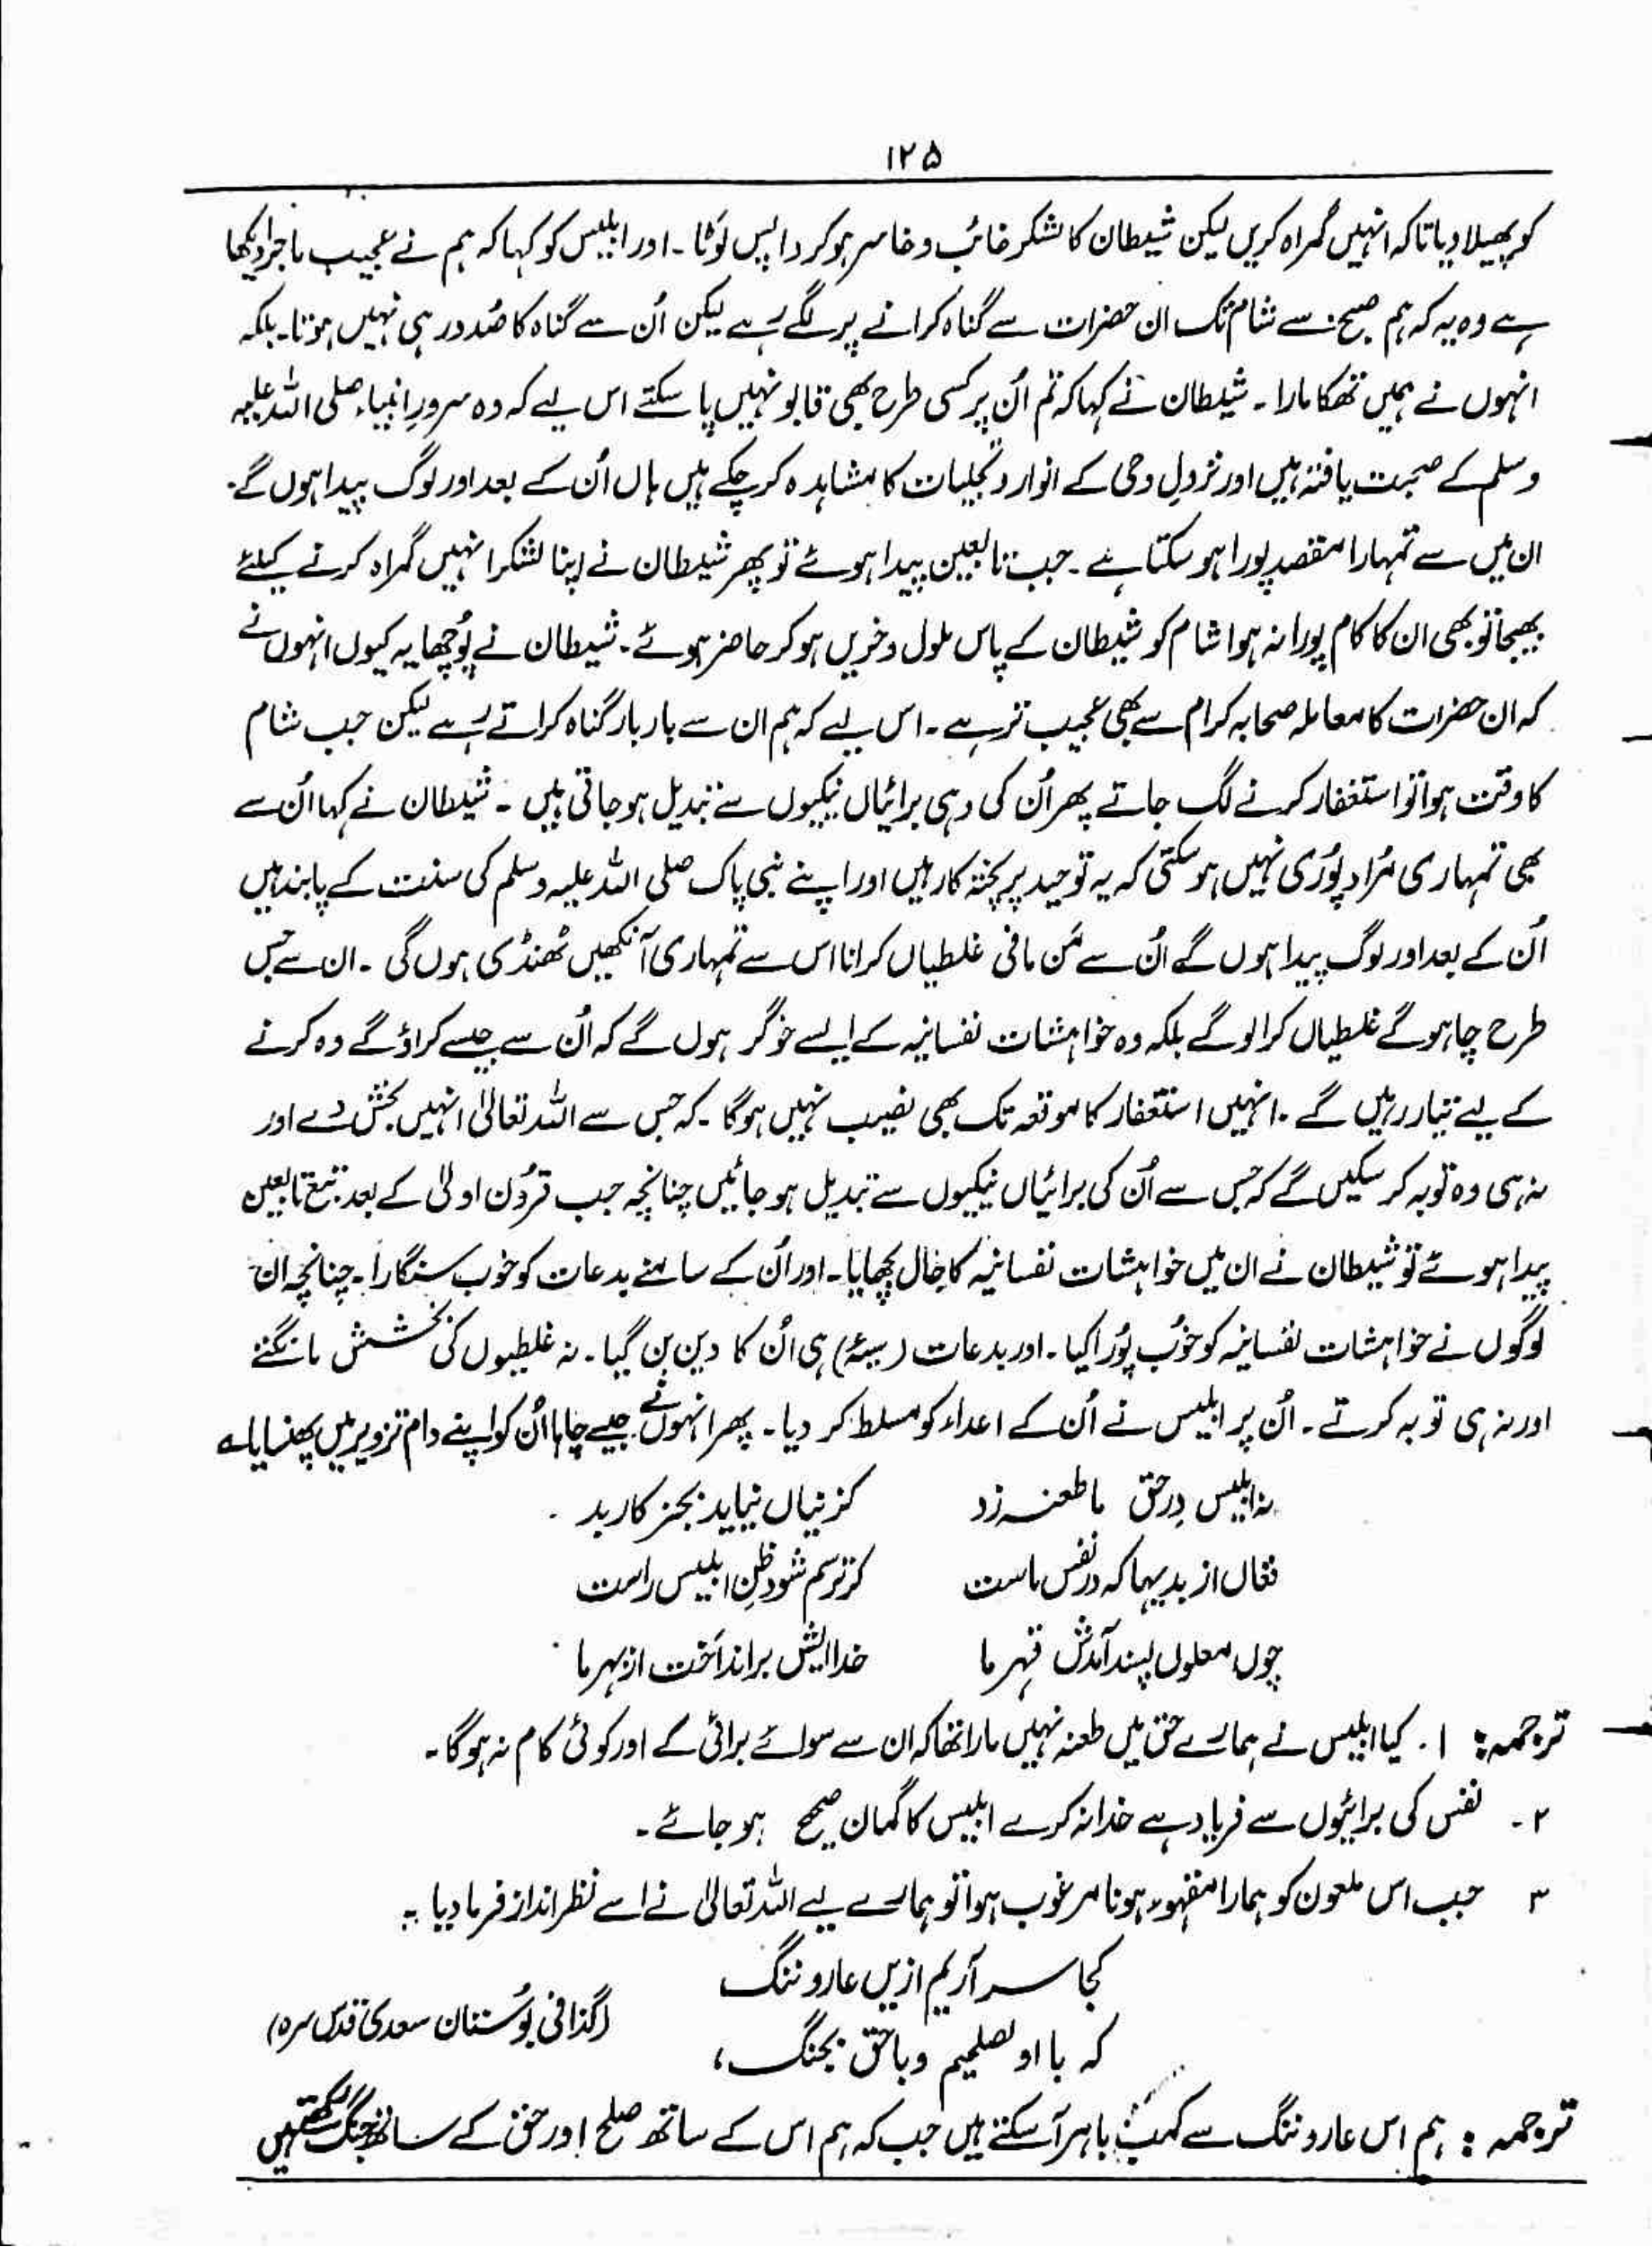 ۱۲۵
کو پھیلا دیا تاکہ انہیں گمراہ کریں لیکن شیطان کا لشکر خائب و خاسر ہو کر واپس لوٹا۔ اور ابلیس کو کہا کہ ہم نے عجیب ماجرا دیکھا
ہے وہ یہ کہ ہم صبح سے شام تک ان حضرات سے گناہ کرانے پر لگے رہے لیکن اُن سے گناہ کا صُدور ہی نہیں ہوتا۔ بلکہ
انہوں نے ہمیں تھکا مارا۔ شیطان نے کہا کہ تم اُن پر کسی طرح بھی قابو نہیں پا سکتے اس لیے کہ وہ سرورِ انبیاء صلی اللہ علیہ
وسلم کے صحبت یافتہ ہیں اور نزولِ وحی کے انوار و تجلیات کا مشاہدہ کر چکے ہیں ہاں اُن کے بعد اور لوگ پیدا ہوں گے۔
ان میں سے تمہارا مقصد پورا ہو سکتا ہے۔ جب تابعین پیدا ہوئے تو پھر شیطان نے اپنا لشکر انہیں گمراہ کرنے کیلئے
بھیجا تو بھی ان کا کام پورا نہ ہوا شام کو شیطان کے پاس ملول وخریں ہو کر حاضر ہوئے۔ شیطان نے پُوچھا یہ کیوں انہوں نے
کہ ان حضرات کا معاملہ صحابہ کرام سے بھی عجیب تر ہے۔ اس لیے کہ ہم ان سے بار بار گناہ کراتے رہے لیکن جب شام
کا وقت ہوا تو استغفار کرنے لگ جاتے پھر اُن کی وہی برائیاں نیکیوں سے تبدیل ہو جاتی ہیں۔ شیطان نے کہا اُن سے
بھی تمہاری مُراد پُوری نہیں ہو سکتی کہ یہ توحید پر پختہ کار ہیں اور اپنے نبی پاک صلی اللہ علیہ وسلم کی سنت کے پابند ہیں
اُن کے بعد اور لوگ پیدا ہوں گے اُن سے مَن مانی غلطیاں کرانا اس سے تمہاری آنکھیں ٹھنڈی ہوں گی۔ ان سے جس
طرح چاہو گے غلطیاں کرا لو گے بلکہ وہ خواہشات نفسانیہ کے ایسے خوگر ہوں گے کہ اُن سے جیسے کراؤ گے وہ کرنے
کے لیے تیار رہیں گے۔ انہیں استغفار کا موقعہ تک بھی نصیب نہیں ہوگا۔ کہ جس سے اللہ تعالیٰ انہیں بخش دے اور
نہ ہی وہ توبہ کر سکیں گے کہ جس سے اُن کی برائیاں نیکیوں سے تبدیل ہو جائیں چنانچہ جب قرون اولیٰ کے بعد تبع تابعین
پیدا ہوئے تو شیطان نے ان میں خواہشات نفسانیہ کا جال بچھایا۔ اور اُن کے سامنے بدعات کو خوب سنگارا۔ چنانچہ ان
لوگوں نے خواہشات نفسانیہ کو خوُب پوُرا کیا۔ اور بدعات (سیئہ) ہی اُن کا دین بن گیا۔ نہ غلطیوں کی بخشش مانگتے
اور نہ ہی توبہ کرتے۔ اُن پر ابلیس نے اُن کے اعداء کو مسلط کر دیا۔ پھر انہوں نے جیسے چاہا اُن کو اپنے دام تزویر میں پھنسایا ؎
نہ ابلیس در حق ما طعنہ زد کزنیاں نیاید بجز کار بد۔
فغاں از بدیہا کہ در نفس ماست کز ترسم شود ظنِ ابلیس راست
چوں معلول پسند آمدش قہر ما خدا ایش برانداخت از بہر ما۔
ترجمہ: ۱۔ کیا ابلیس نے ہمارے حق میں طعنہ نہیں مارا تھا کہ ان سے سوائے برائی کے اور کوئی کام نہ ہوگا۔
۲۔ نفس کی برائیوں سے فریاد ہے خدا نہ کرے ابلیس کا گمان صحیح ہو جائے۔
۳ جب اس ملعون کو ہمارا مقہور ہونا مرغوب ہوا تو ہمارے لیے اللہ تعالیٰ نے اسے نظر انداز فرما دیا ؎
کجا سر آریم ازیں عار و ننگ
کہ با او بصلحیم و با حق بجنگ،
(کذا فی بُوستان سعدی قدس سرہ)
ترجمہ: ہم اس عار و ننگ سے کب باہر آ سکتے ہیں جب کہ ہم اس کے ساتھ صلح اور حق کے ساتھ جنگ رکھتے ہیں